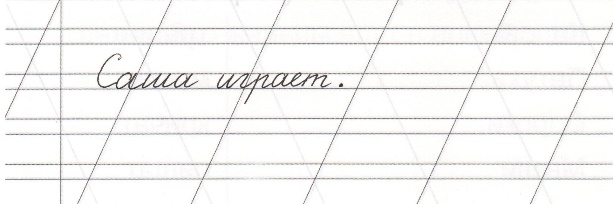 Саша играет.